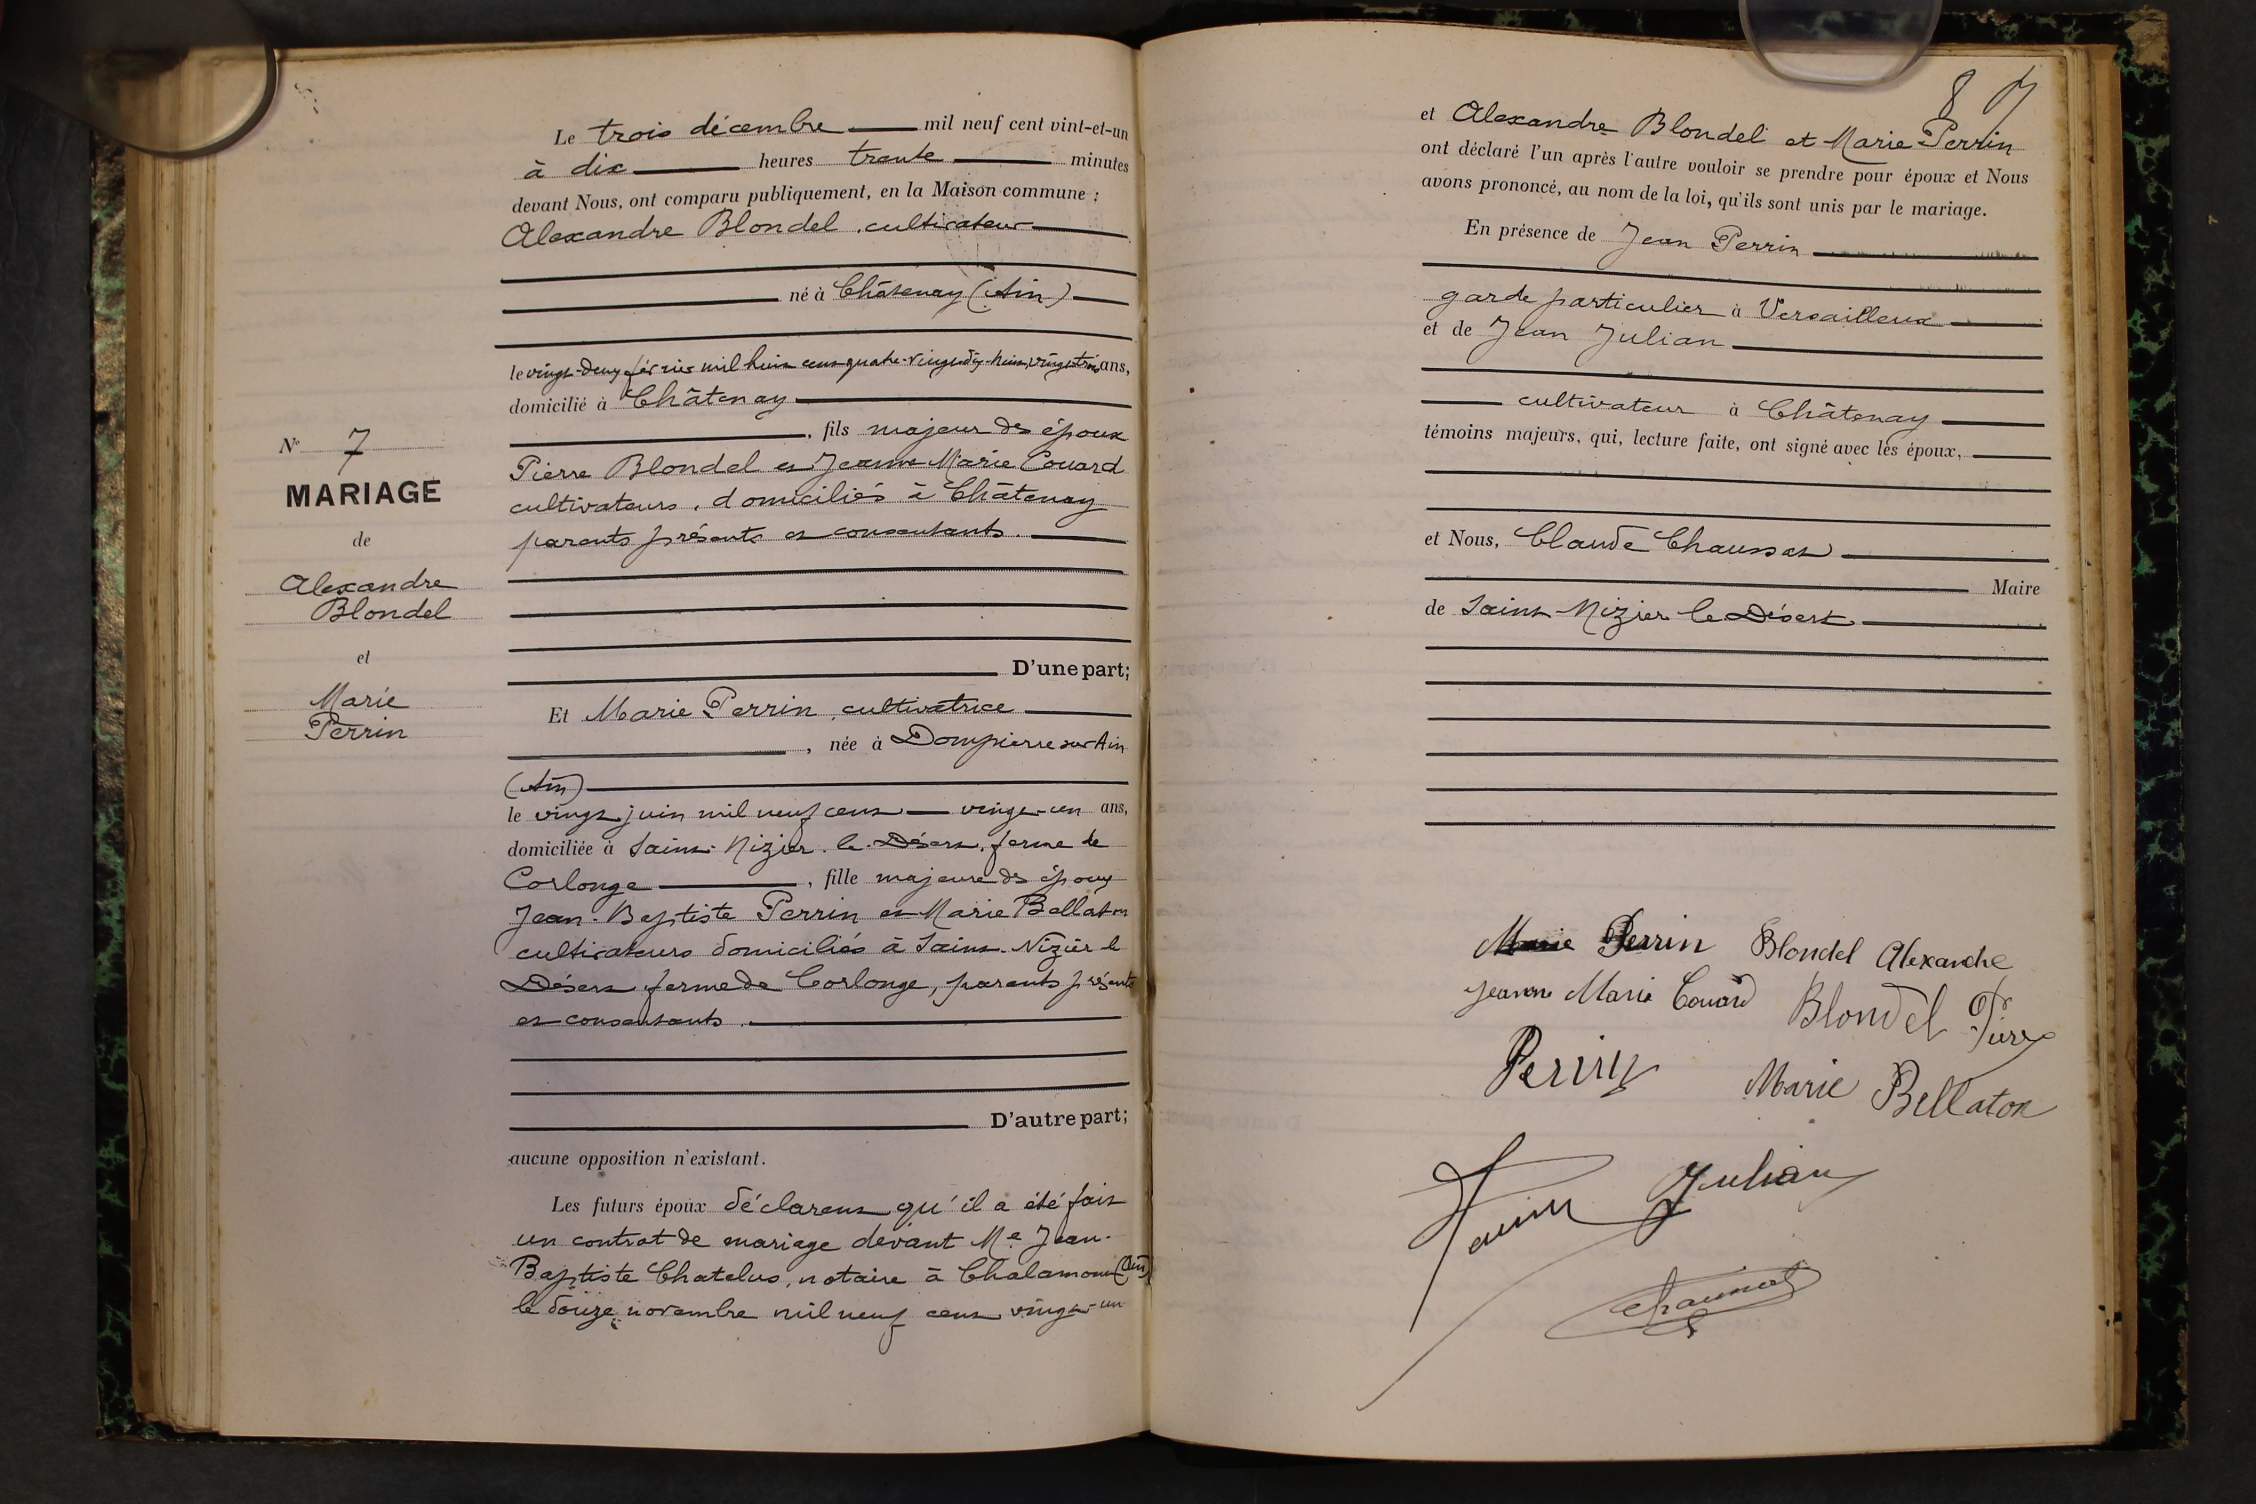 N° 7
MARIAGE
de
Alexandre
Blondel
et
Marie
Perrin
Le trois décembre mil neuf cent vint-et-un
à dix heures trente minutes
devant Nous, ont comparu publiquement, en la Maison commune :
Alexandre Blondel, cultivateur
né à Châtenay (Ain)
le vingt-deux février mil huit cent quatre-vingt-dix-huit, vingt trois ans,
domicilié à Châtenay
, fils majeur des époux
Pierre Blondel et Jeanne Marie Couard
cultivateurs, domiciliés à Châtenay
parents présents et consentants.
D'une part;
Et Marie Perrin, cultivatrice
, née à Dompierre sur Ain
(Ain)
le vingt juin mil neuf cent vingt-un ans,
domiciliée à Saint-Nizier-le-Désert, ferme de
Corlonge, fille majeure des époux
Jean-Baptiste Perrin et Marie Bellaton
cultivateurs domiciliés à Saint-Nizier le
Désert ferme de Corlonge, parents présents
et consentants.
D'autre part;
aucune opposition n'existant.
Les futurs époux déclarent qu'il a été fait
un contrat de mariage devant Me Jean-
Baptiste Chatelus, notaire à Chalamont (Ain)
le douze novembre mil neuf cent vingt-un
87
et Alexandre Blondel et Marie Perrin
ont déclaré l'un après l'autre vouloir se prendre pour époux et Nous
avons prononcé, au nom de la loi, qu'ils sont unis par le mariage.
En présence de Jean Perrin
garde particulier à Versailleux
et de Jean Julian
cultivateur à Châtenay
témoins majeurs, qui, lecture faite, ont signé avec les époux,
et Nous, Claude
Maire
de Saint-Nizier le Désert
Marie Perrin Blondel Alexandre
Jeanne Marie Couard Blondel Pierre
Perrin Marie Bellaton
Julian